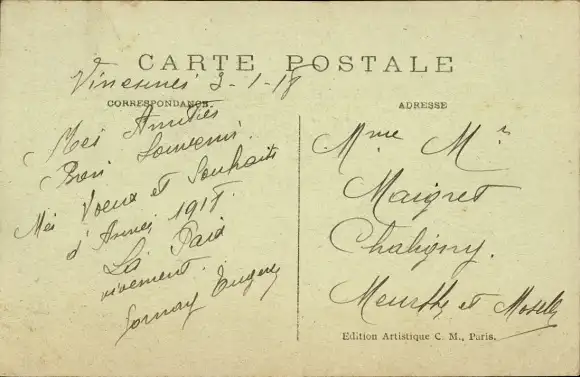 CARTE POSTALE
Vincennes 3-1-18
CORRESPONDANCE
ADRESSE
Mes Amitiés
Bon Souvenir
Mes Voeux et Souhaits
d'Année 1918
La Paix
vivement.
Eugène
Mme Mr
Maigret
Chaligny.
Meurthe et Moselle
Edition Artistique C. M., Paris.